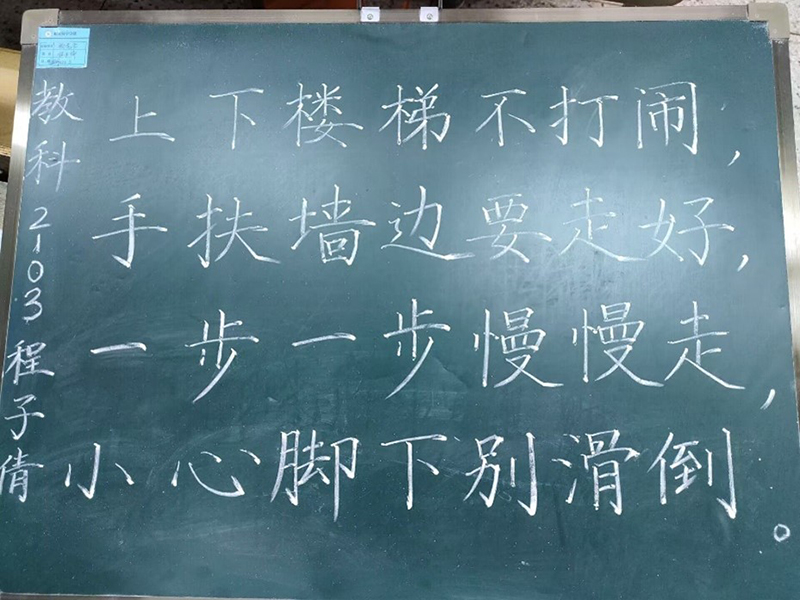 上下楼梯不打闹，
手扶墙边要走好，
一步一步慢慢走，
小心脚下别滑倒。
教科2103程子倩